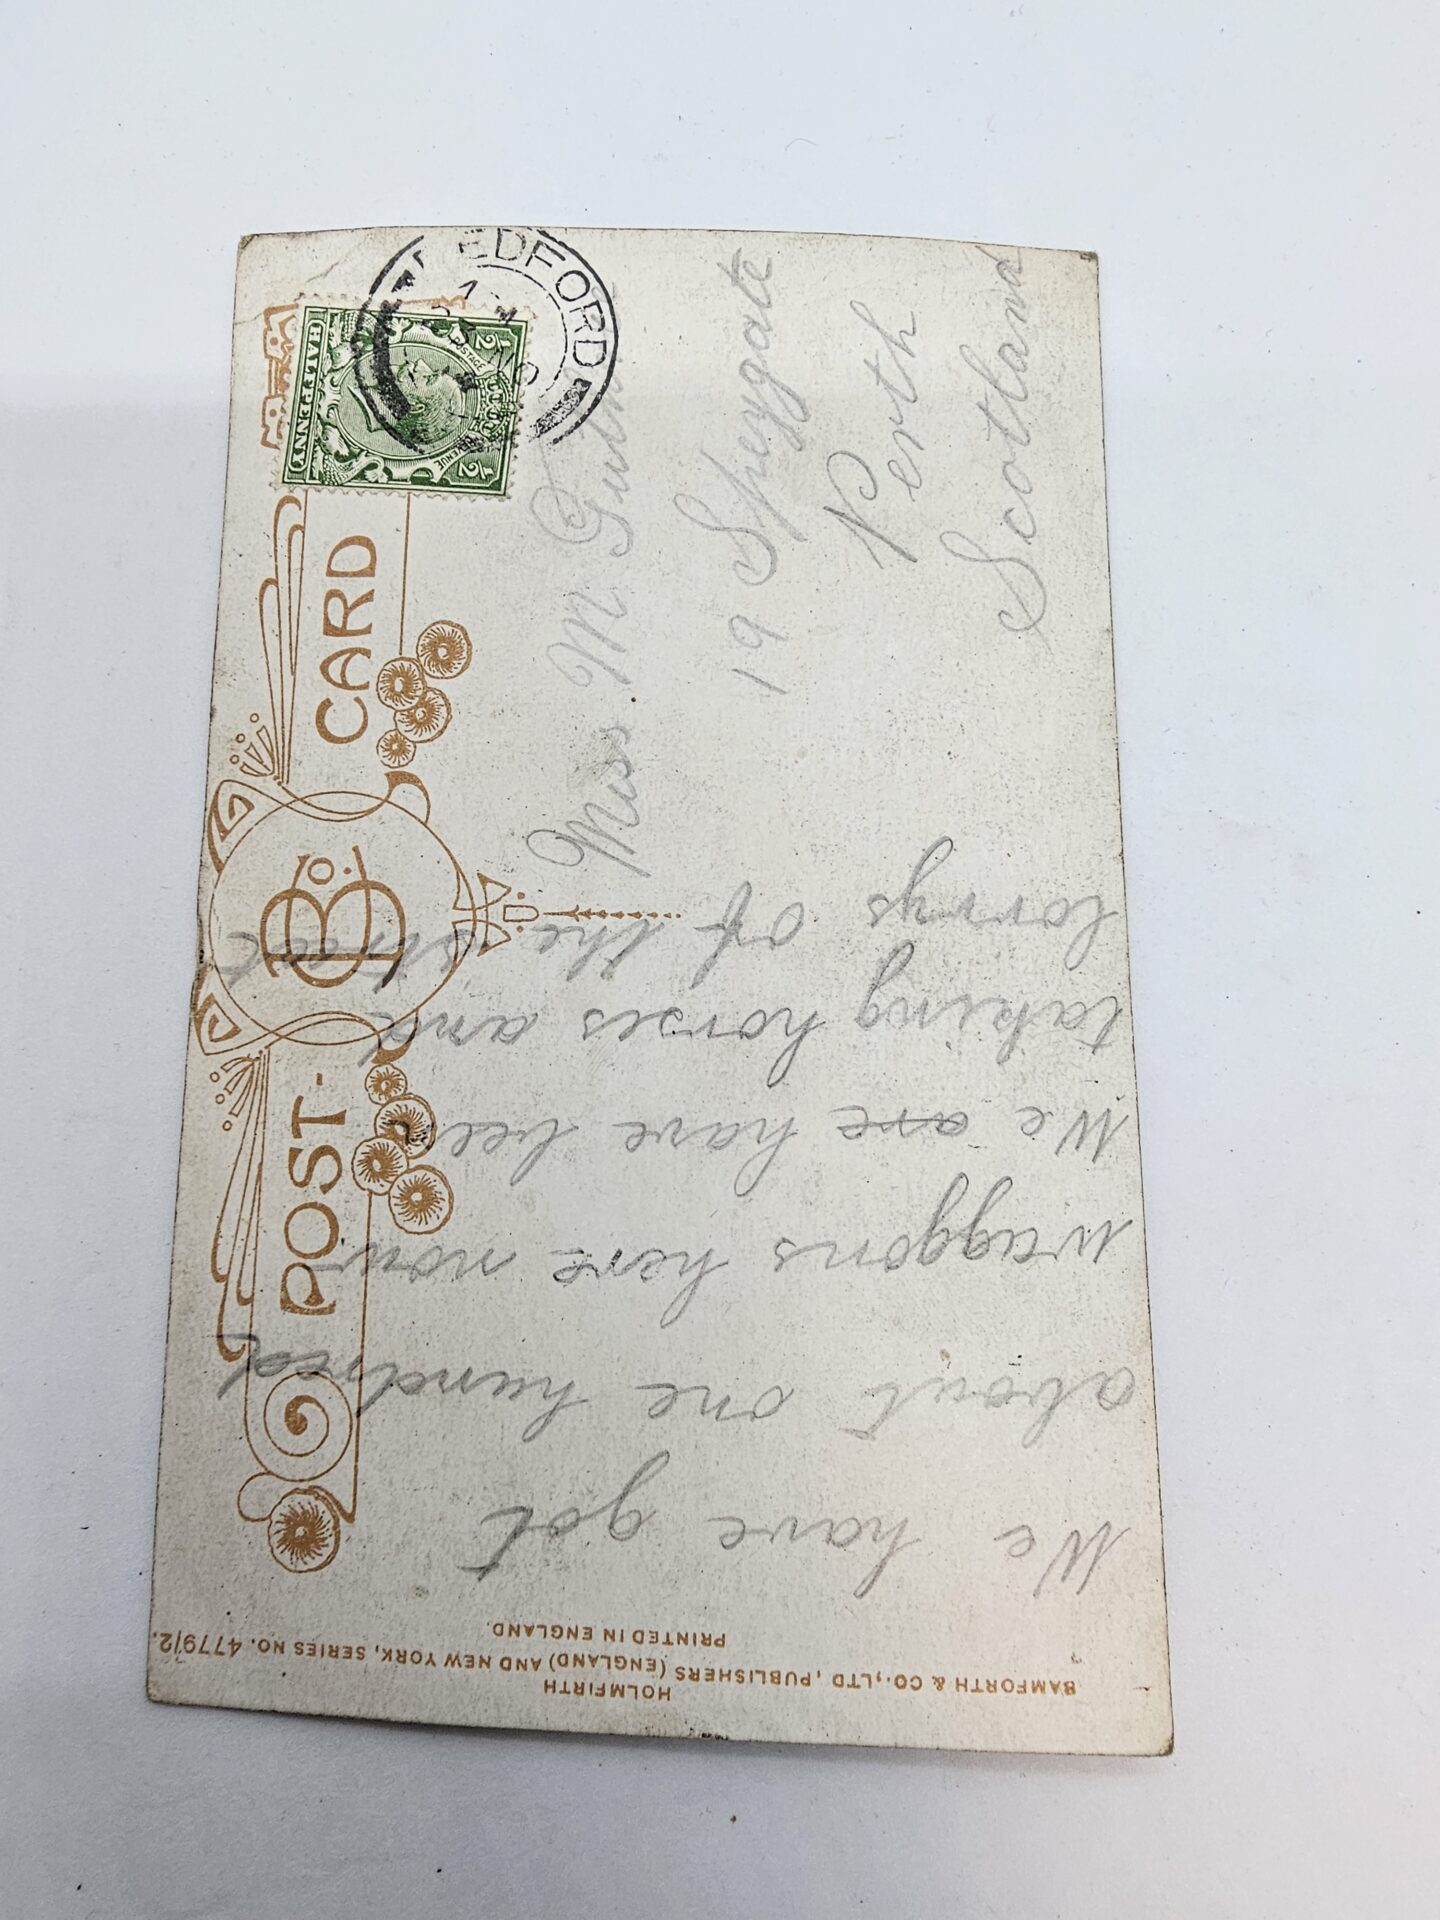 POST-CARD
B Co.
BEDFORD
NO
HALFPENNY
POSTAGE
REVENUE
1/2
1/2
Miss M
19 Speygate
Perth
Scotland
We have got
about one hundred
waggons here now
We are have been
taking horses and
lorrys of the street
BAMFORTH & CO., LTD, PUBLISHERS (ENGLAND) AND NEW YORK, SERIES NO. 4779/2.
HOLMFIRTH
PRINTED IN ENGLAND.